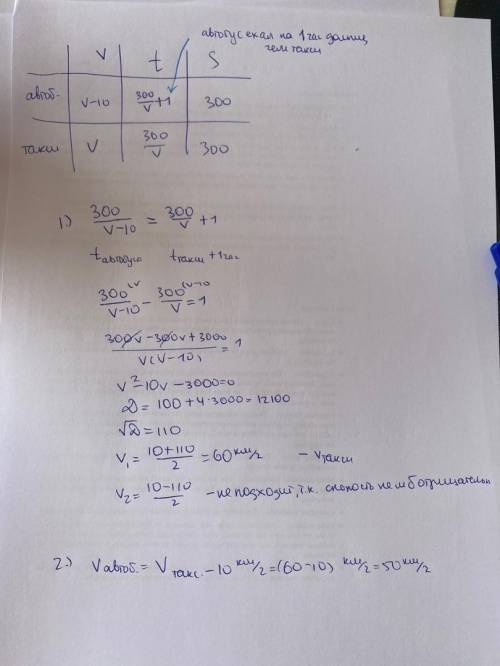 автобус ехал на 1 час дольше,
чем такси
V t S
автоб. V-10 300/V+1 300
такси V 300/V 300
1.) 300/V-10 = 300/V +1
tавтобуса tтакси +1час
300\V/V-10 - 300\V-10/V = 1
300V-300V+3000/V(V-10) = 1
V²-10V-3000=0
D=100+4·3000=12100
√D=110
V₁=10+110/2=60км/г - Vтакси
V₂=10-110/2 -не подходит, т.к. скорость не м.б отрицательн
2.) Vавтоб.=Vтакс.-10км/г=(60-10) км/г=50км/г